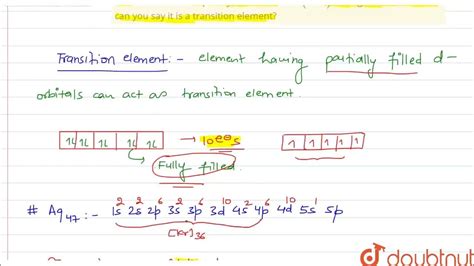 can you say it is a transition element?
Transition element:- element having partially filled d-
orbitals can act as transition element.
1l 1l 1l 1l 1l → 10e⊖s 1 1 1 1 1
Fully filled.
# Ag47 :- 1s2 2s2 2p6 3s2 3p6 3d10 4s2 4p6 4d10 5s1 5p
[Kr]36
doubtnut